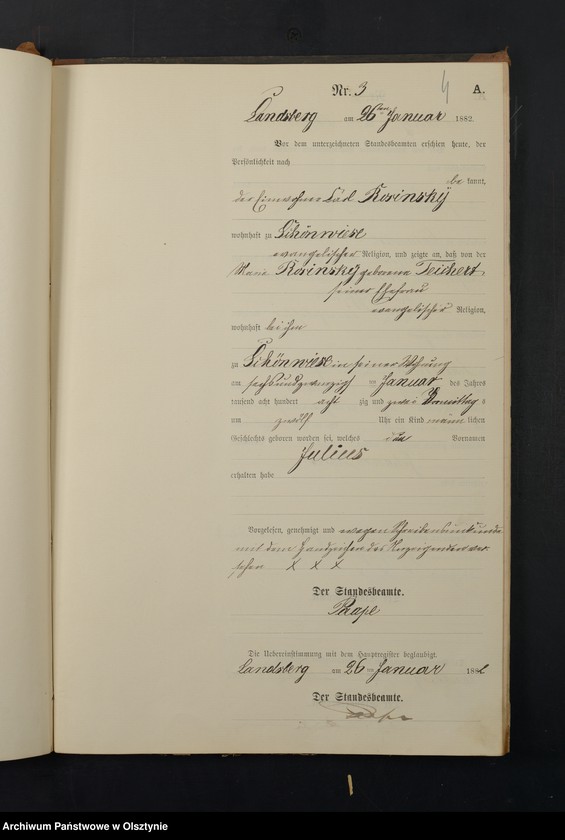 Nr. 3
4
A.
Landsberg am 26ten Januar 1882.
Vor dem unterzeichneten Standesbeamten erschien heute, der
Persönlichkeit nach
be kannt,
der Einwohner Carl Rosinsky
wohnhaft zu Schönwiese
evangelischer Religion, und zeigte an, daß von der
Marie Rosinsky geborene Teichert,
seiner Ehefrau
evangelischer Religion,
wohnhaft bei ihm
zu Schönwiese in seiner Wohnung
am sechsundzwanzigsten Januar des Jahres
tausend acht hundert acht zig und zwei Vormittag s
um zwölf Uhr ein Kind männ lichen
Geschlechts geboren worden sei, welches den Vornamen
Julius
erhalten habe
Vorgelesen, genehmigt und wegen Schreibensunkunde
mit dem Handzeichen des Anzeigenden ver-
sehen X X X
Der Standesbeamte.
Die Uebereinstimmung mit dem Hauptregister beglaubigt.
Landsberg am 26ten Januar 1882
Der Standesbeamte.
Archiwum Państwowe w Olsztynie